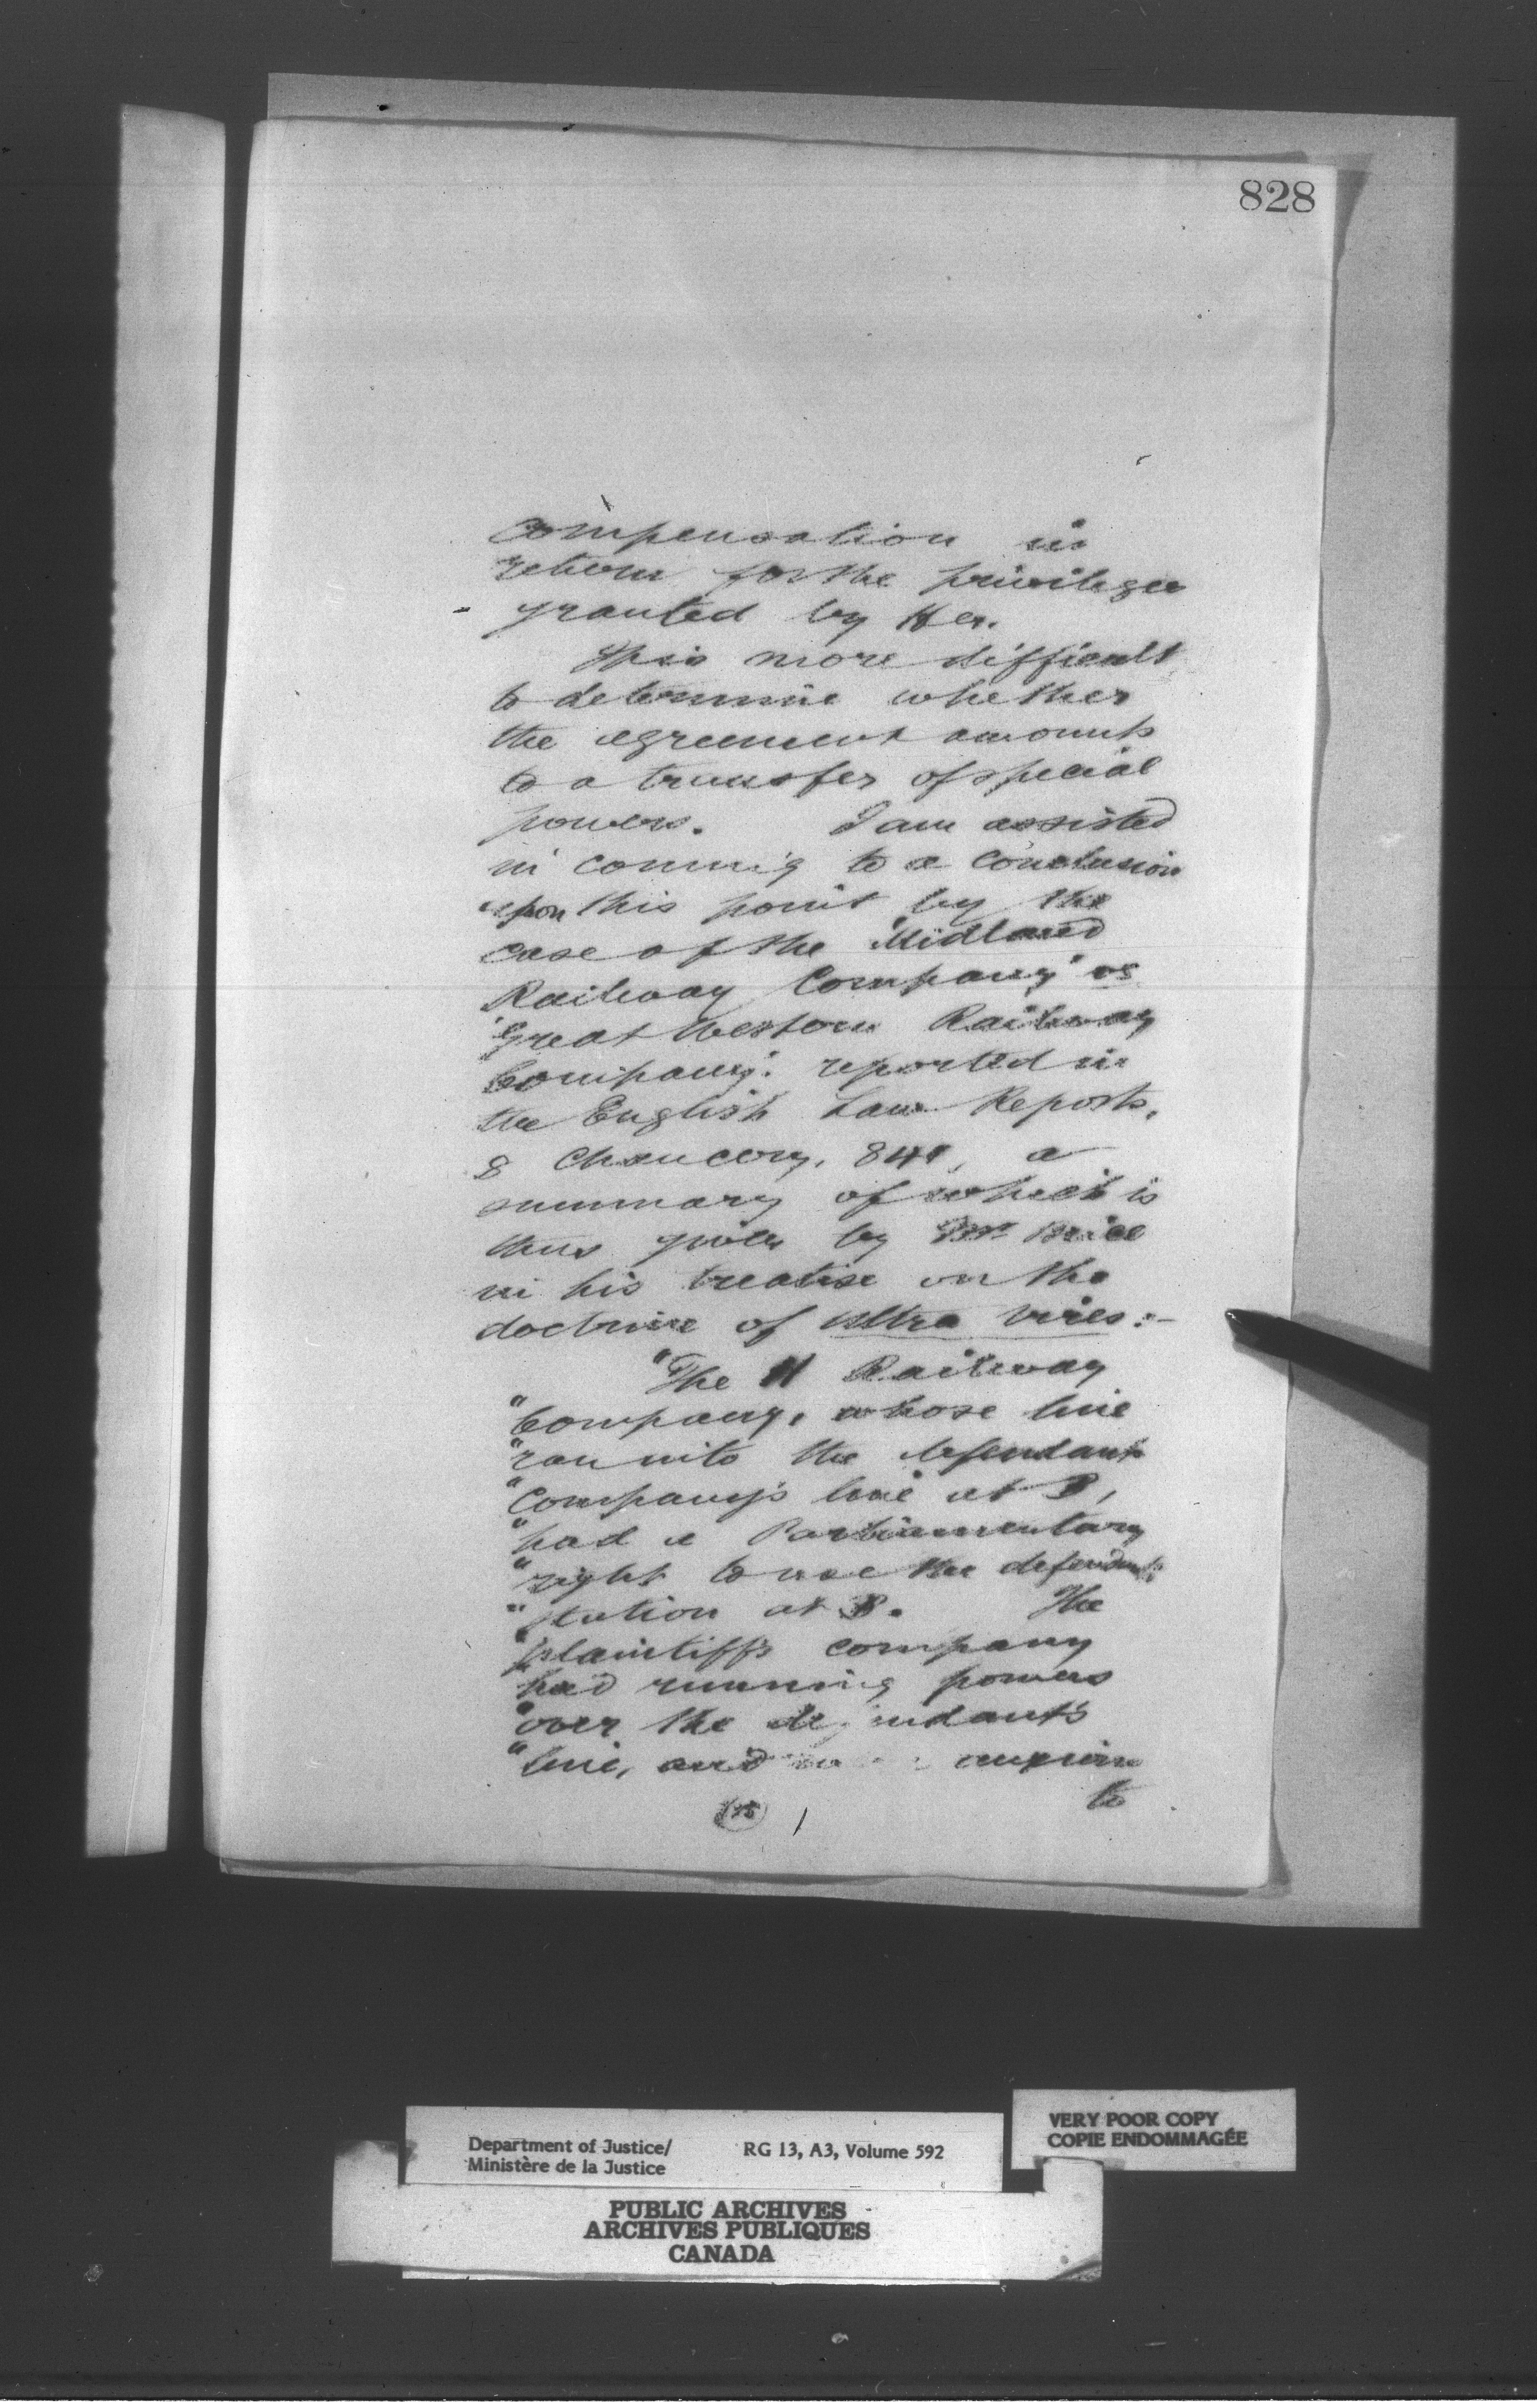 828
compensation in
return for the privileges
granted by Her.
It is more difficult
to determine whether
the agreement amounts
to a transfer of special
powers. I am assisted
in coming to a conclusion
upon this point by the
case of the "Midland
Railway Company" vs
"Great Western Railway
Company". reported in
the English Law Reports,
8 Chancery, 841, a
summary of which is
thus given by Mr Brice
in his treatise on the
doctrine of ultra vires:-
"The H Railway
"Company, whose line
"ran into the defendants
"Company's line at B,
"had a Parliamentary
"right to use the defendants
"station at B. The
"plaintiff's company
"had running powers
"over the defendant's
"line, and
to
Department of Justice/
Ministère de la Justice
RG 13, A3, Volume 592
VERY POOR COPY
COPIE ENDOMMAGÉE
PUBLIC ARCHIVES
ARCHIVES PUBLIQUES
CANADA